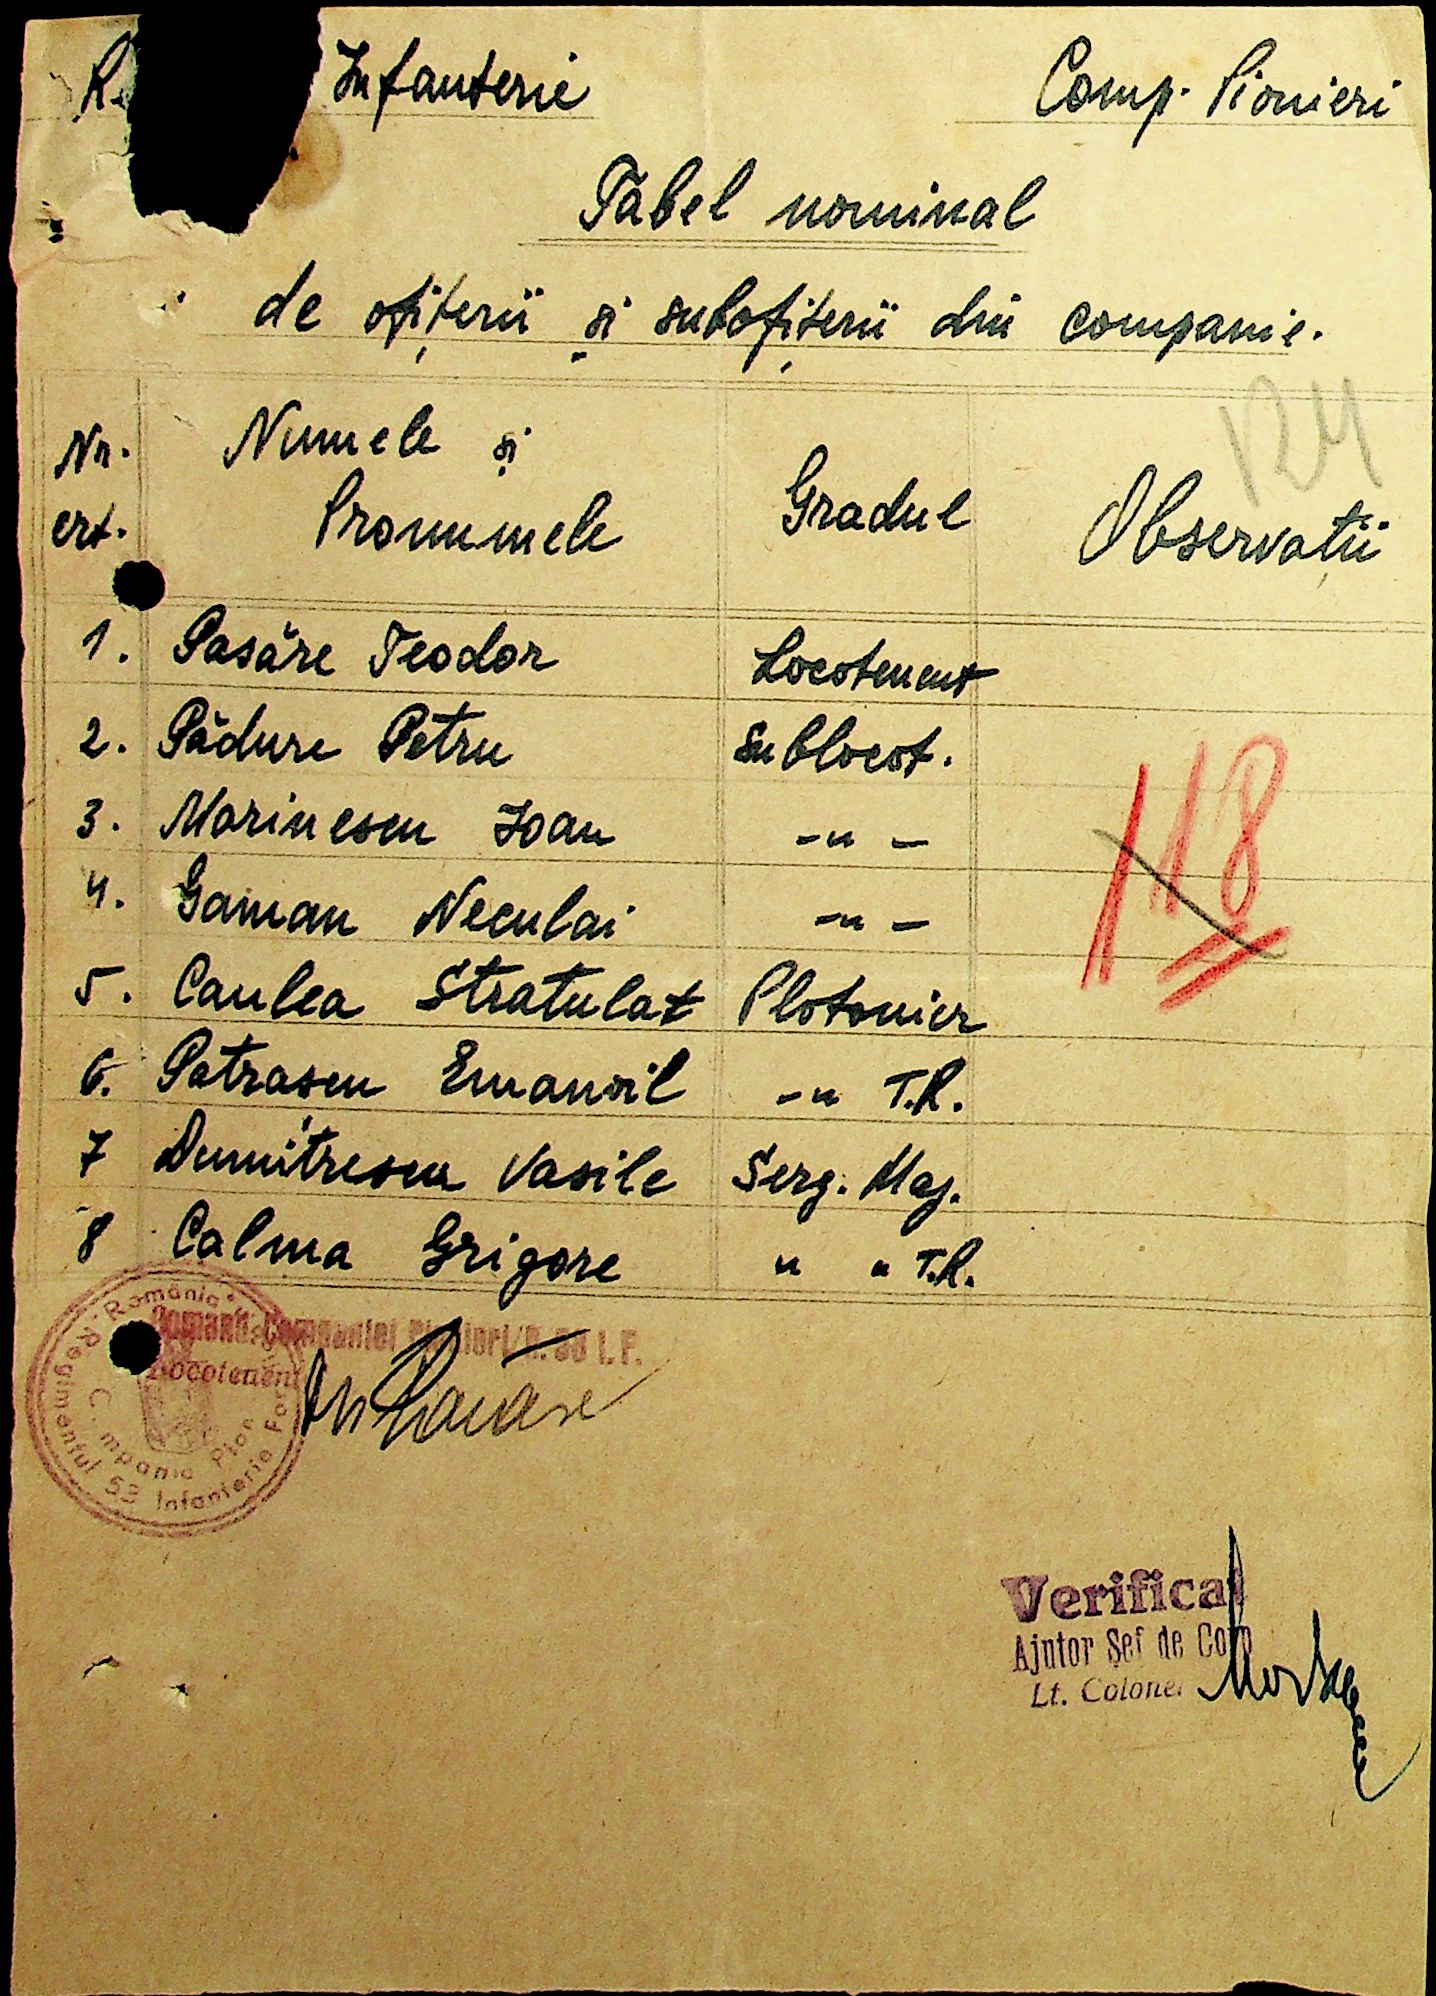 Infanterie
Comp. Pionieri
Tabel nominal
de ofițerii și subofițerii din companie.
124
Nr. crt.
Numele și Pronumele
Gradul
Observații
1. Pasăre Teodor Locotenent
2. Pădure Petru Sublocot.
3. Marinescu Ioan -"-
4. Gaman Neculai -"-
5. Caulea Stratulat Plotonier
6. Patrascu Emanoil -" T.R.
7 Dumitrescu Vasile Serg. Maj.
8 Calma Grigore " " T.R.
118
Comand. Companiei Pionieri/R. 53 I. F.
Locotenent
România
Regimentul 53 Infanterie
Compania Pion
Verificat
Ajutor Șef de Corp
Lt. Colonel